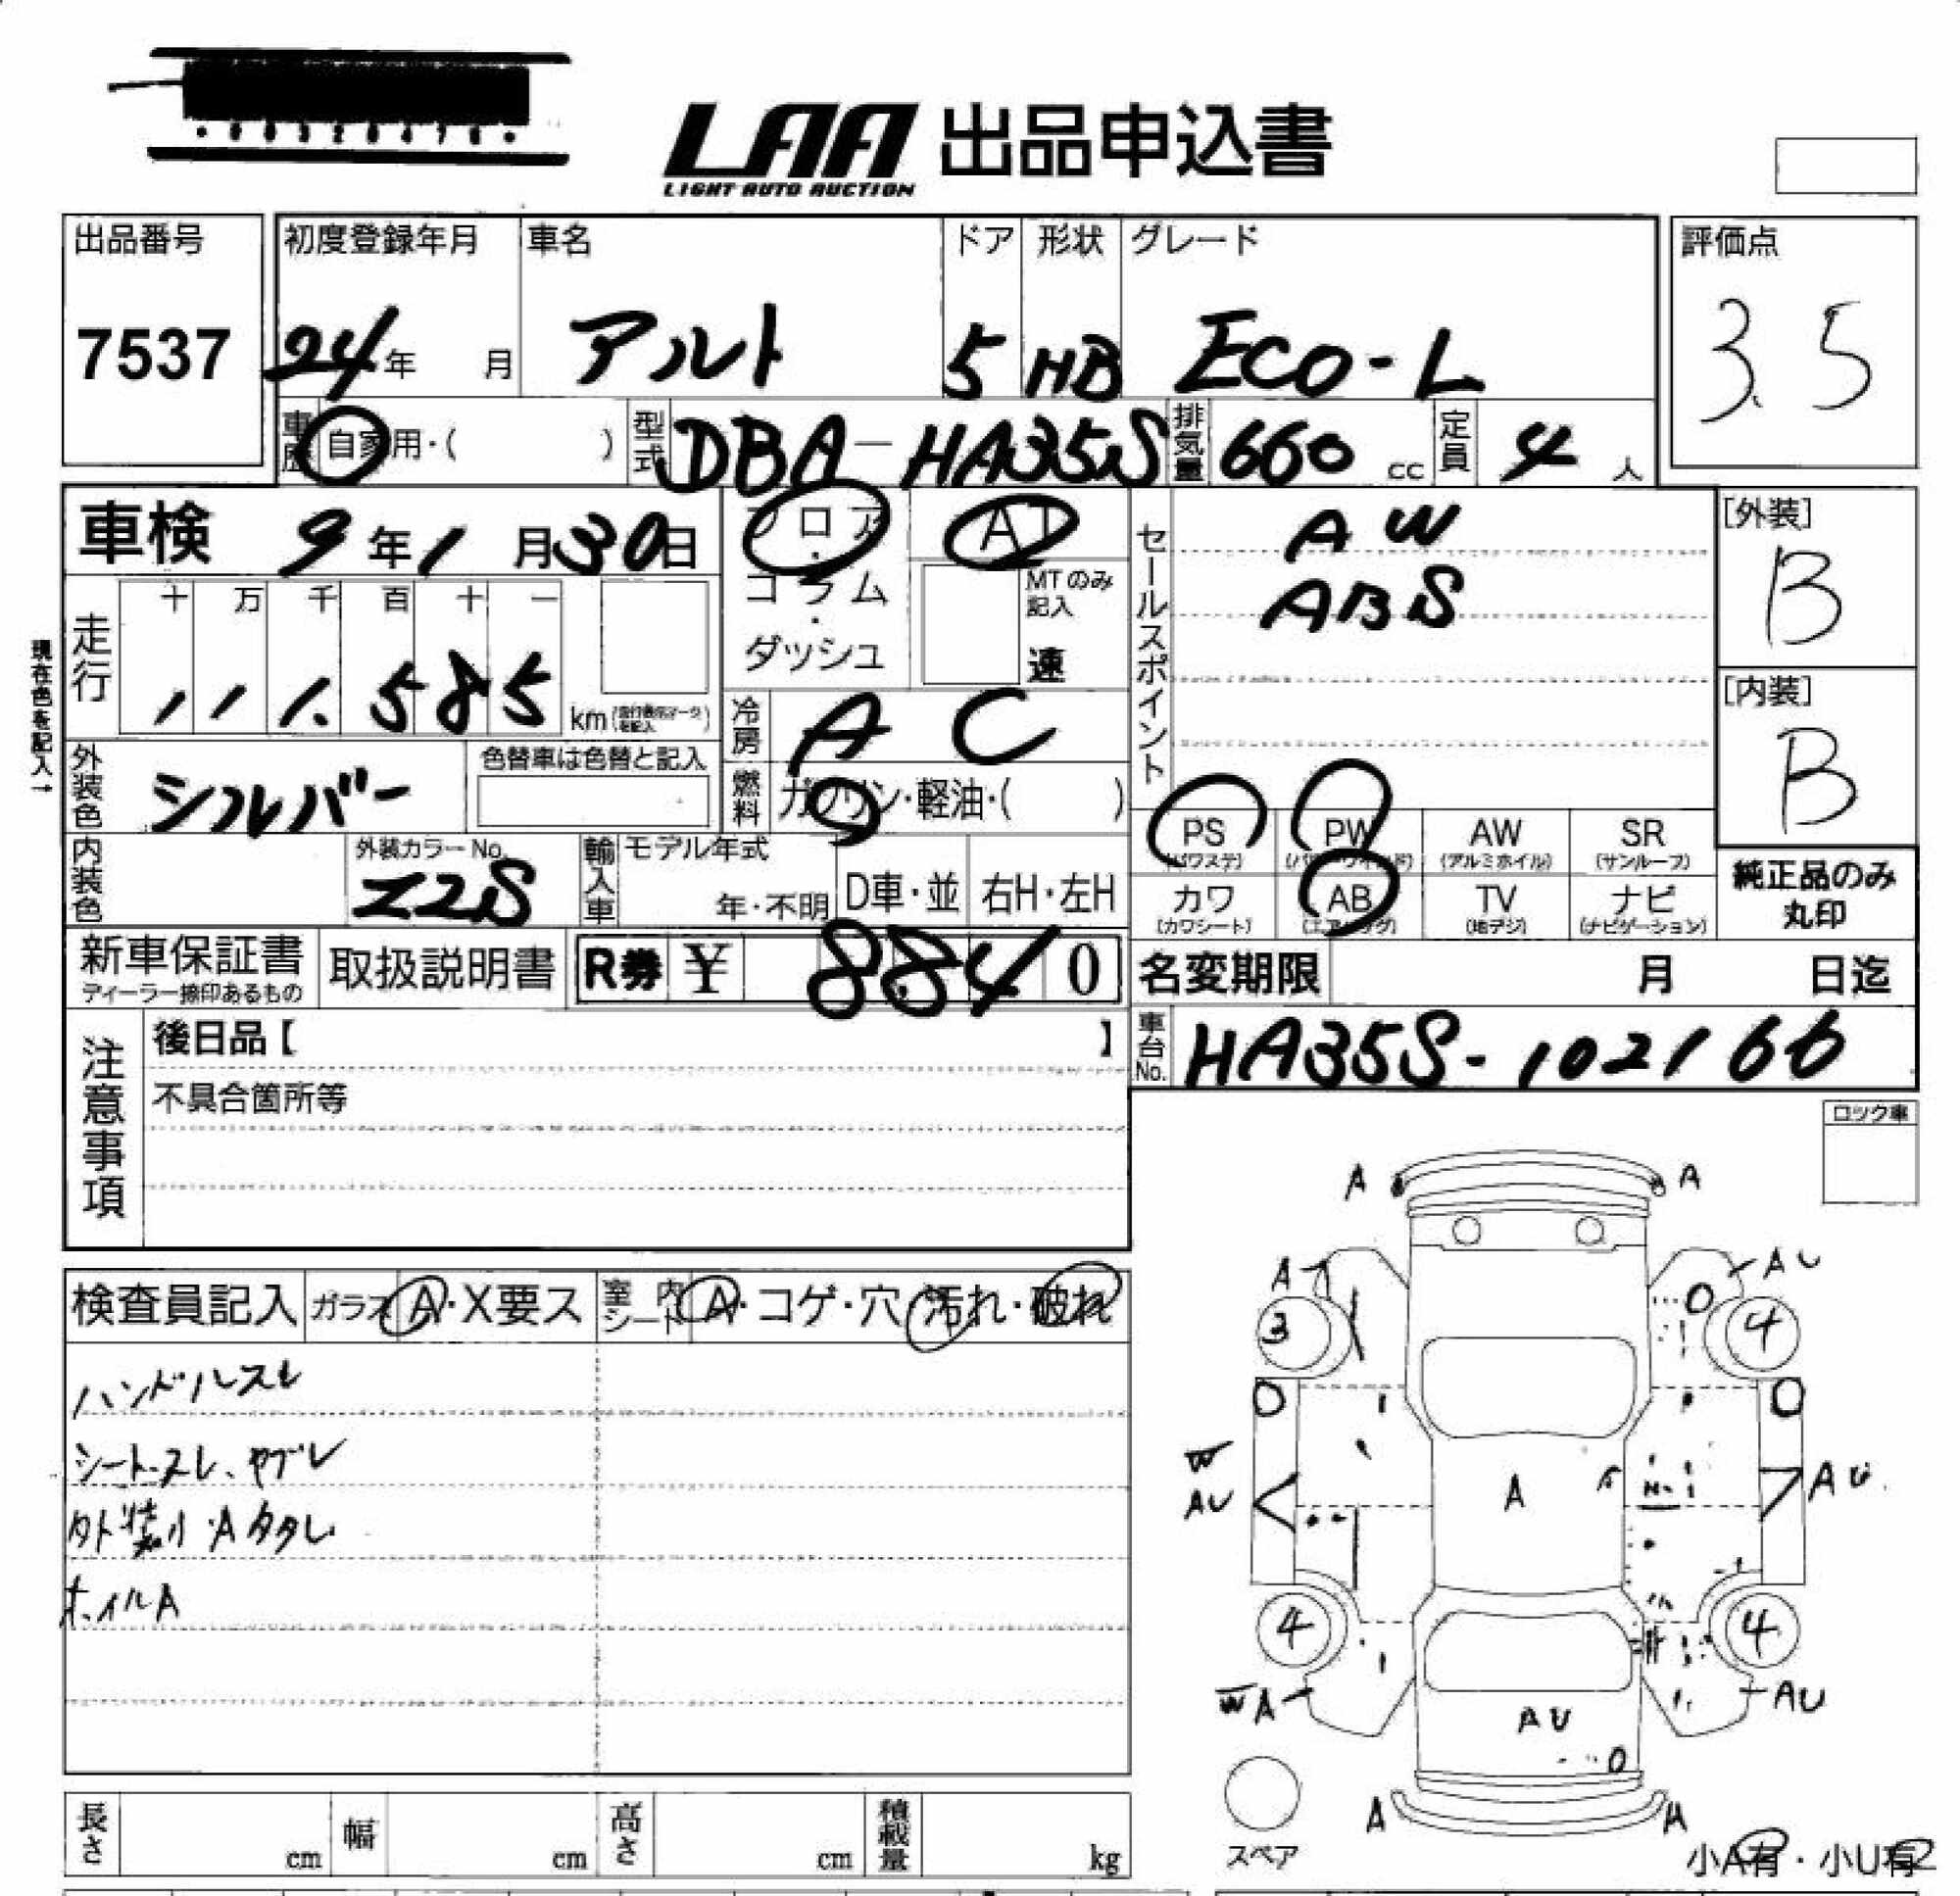 LAA 出品申込書
LIGHT AUTO AUCTION
出品番号 初度登録年月 車名 ドア 形状 グレード 評価点
7537 24年 月 アルト 5 HB ECO-L 3.5
車歴 自家用・( ) 型式 DBA-HA35S 排気量 660 cc 定員 4 人
車検 9年1月30日 フロア・コラム・ダッシュ AT MTのみ記入 速
セールスポイント AW
ABS
[外装] B
走行 十 万 千 百 十 一
111,585 km
現在色を記入→
[内装] B
冷房 AC
外装色 シルバー 色替車は色替と記入
燃料 ガソリン・軽油・( )
PS (パワステ) PW (パワーウインド) AW (アルミホイル) SR (サンルーフ)
内装色 外装カラーNo. Z2S 輸入車 モデル年式 年・不明 D車・並 右H・左H
カワ (カワシート) AB (エアバッグ) TV (地デジ) ナビ (ナビゲーション)
純正品のみ丸印
新車保証書 ディーラー捺印あるもの 取扱説明書 R券 ¥ 8,840
名変期限 月 日迄
注意事項 後日品【 】
車台No. HA35S-102166
不具合箇所等
ロック車
検査員記入 ガラス A・X要ス 室内シート A・コゲ・穴・汚れ・破れ
ハンドルスレ
シートスレ、ヤブレ
外装小Aタタレ
ホイルA
A A
A AU
3 4
W
AU A AU
4 4
WA AU AU
A A
スペア
小A有・小U有2
長さ cm 幅 cm 高さ cm 積載量 kg